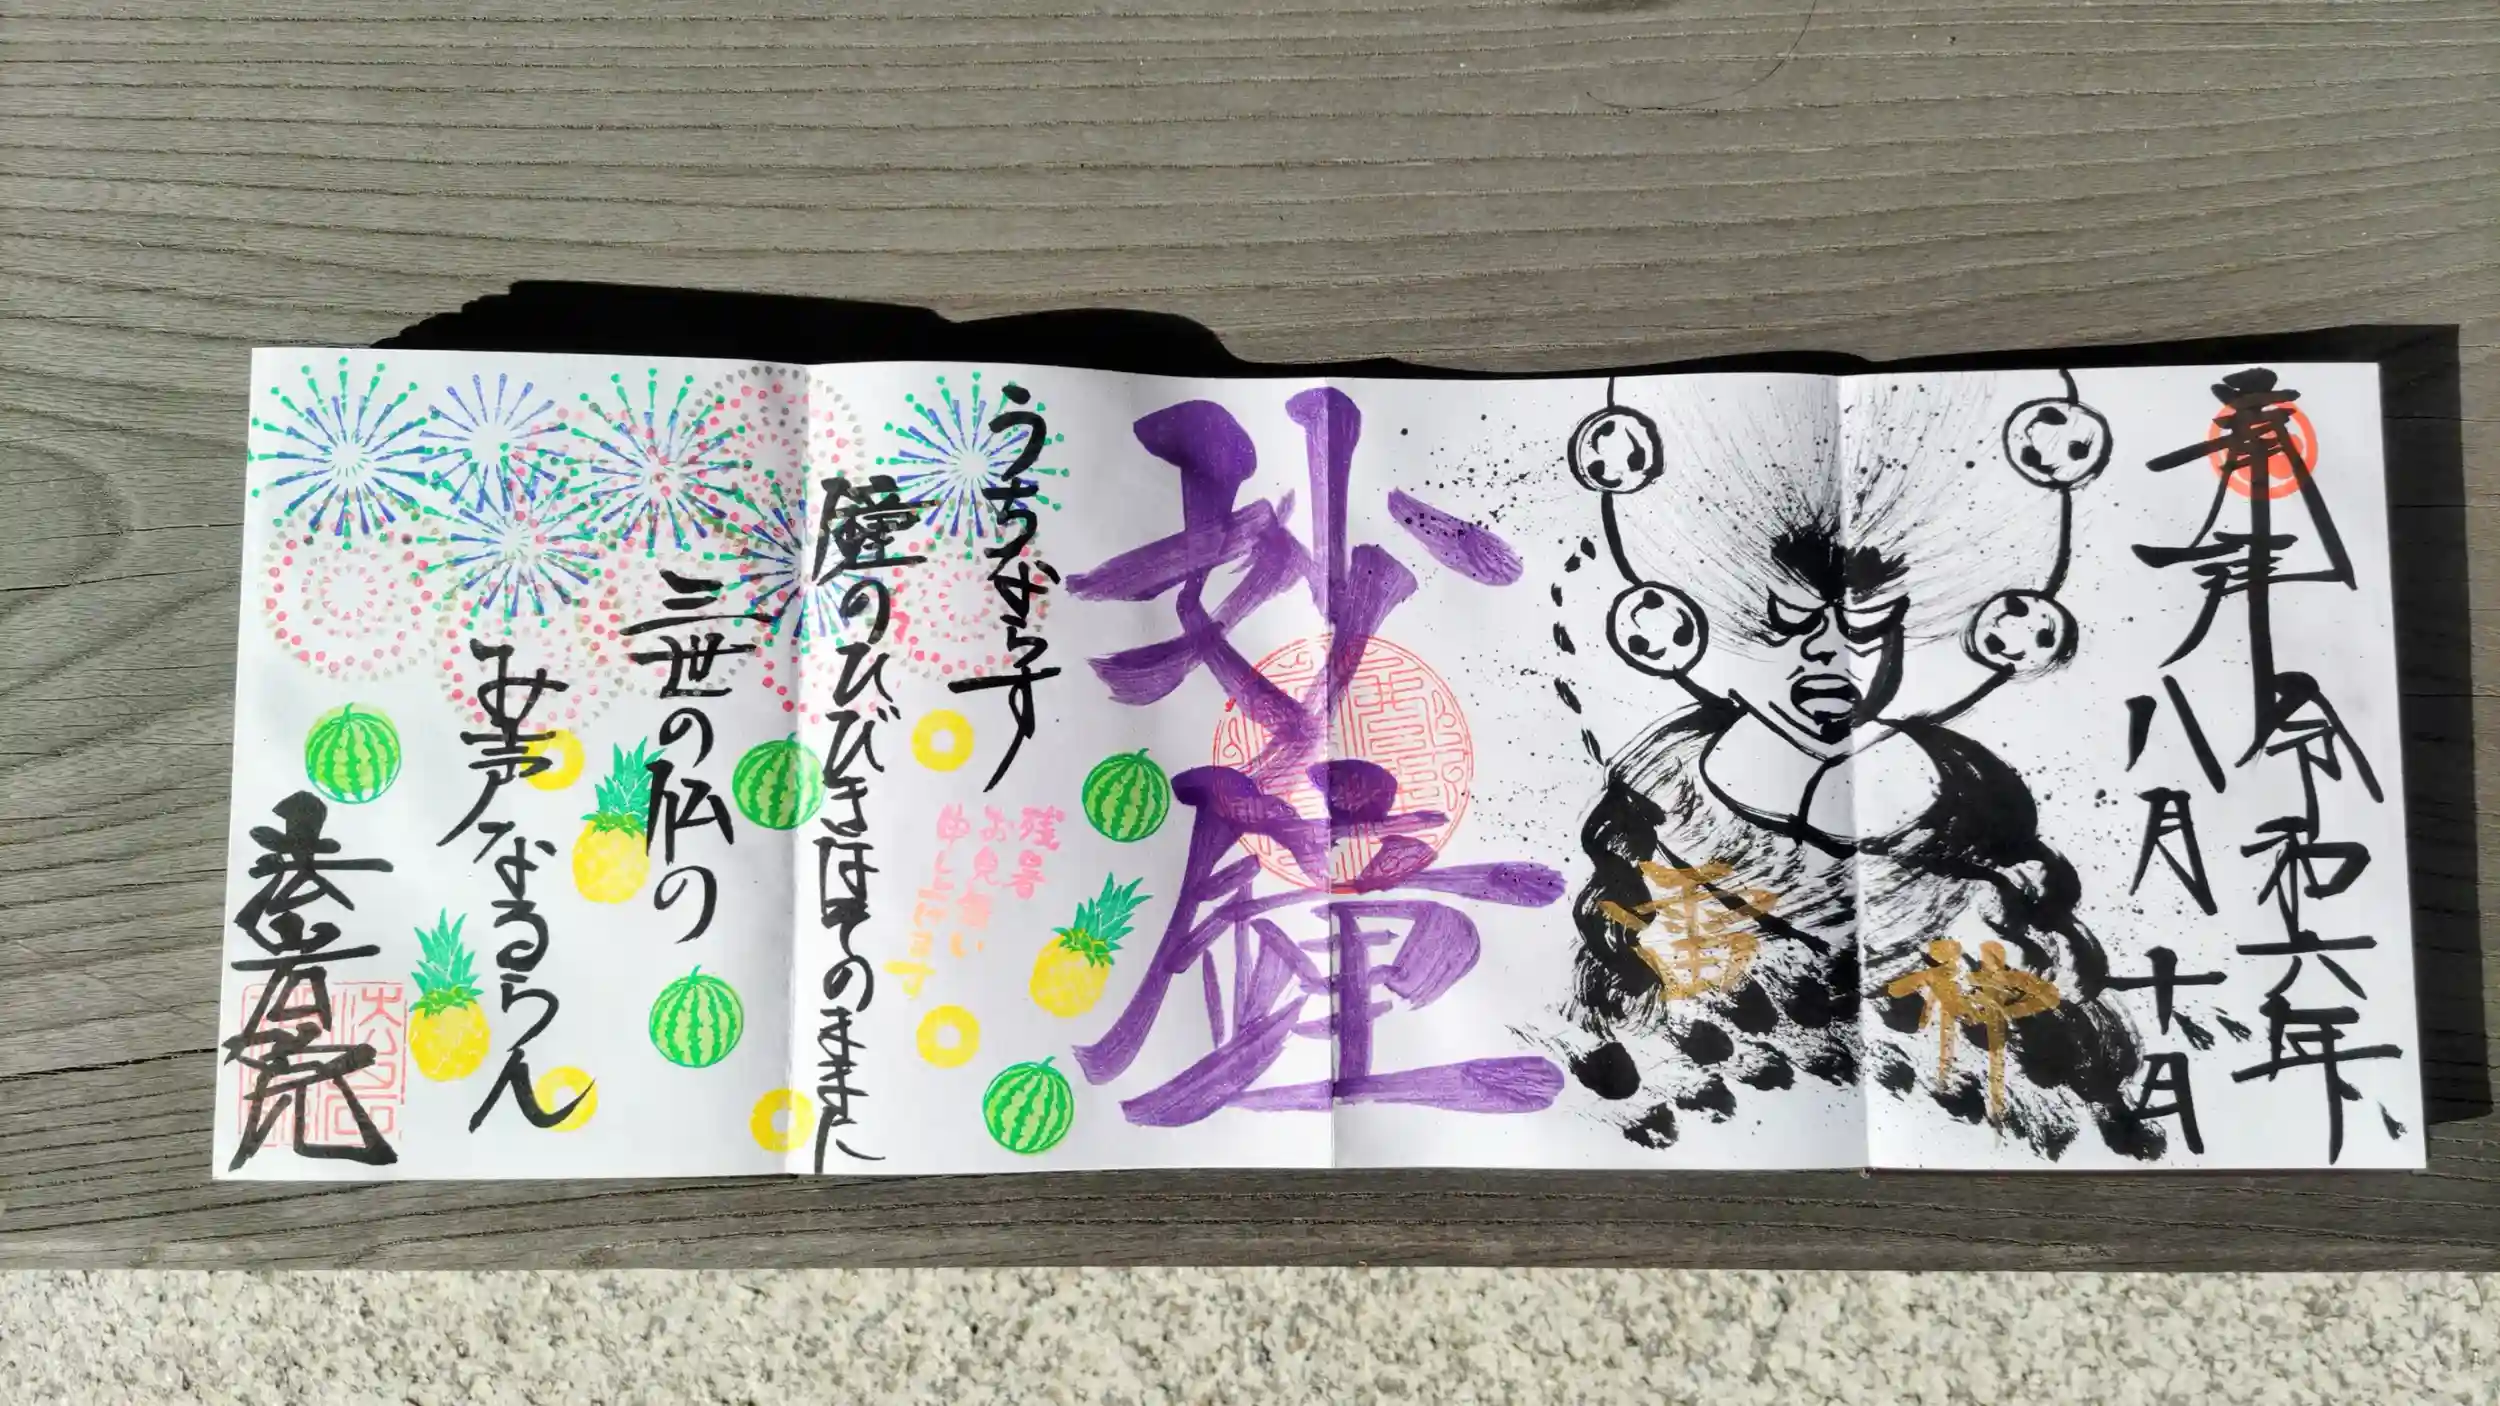 奉拝 令和六年
八月十日
雷神
妙鐘
うちならす
鐘のひびきはそのままに
三世の仏の
み声なるらん
残暑
お見舞い
申し上げます